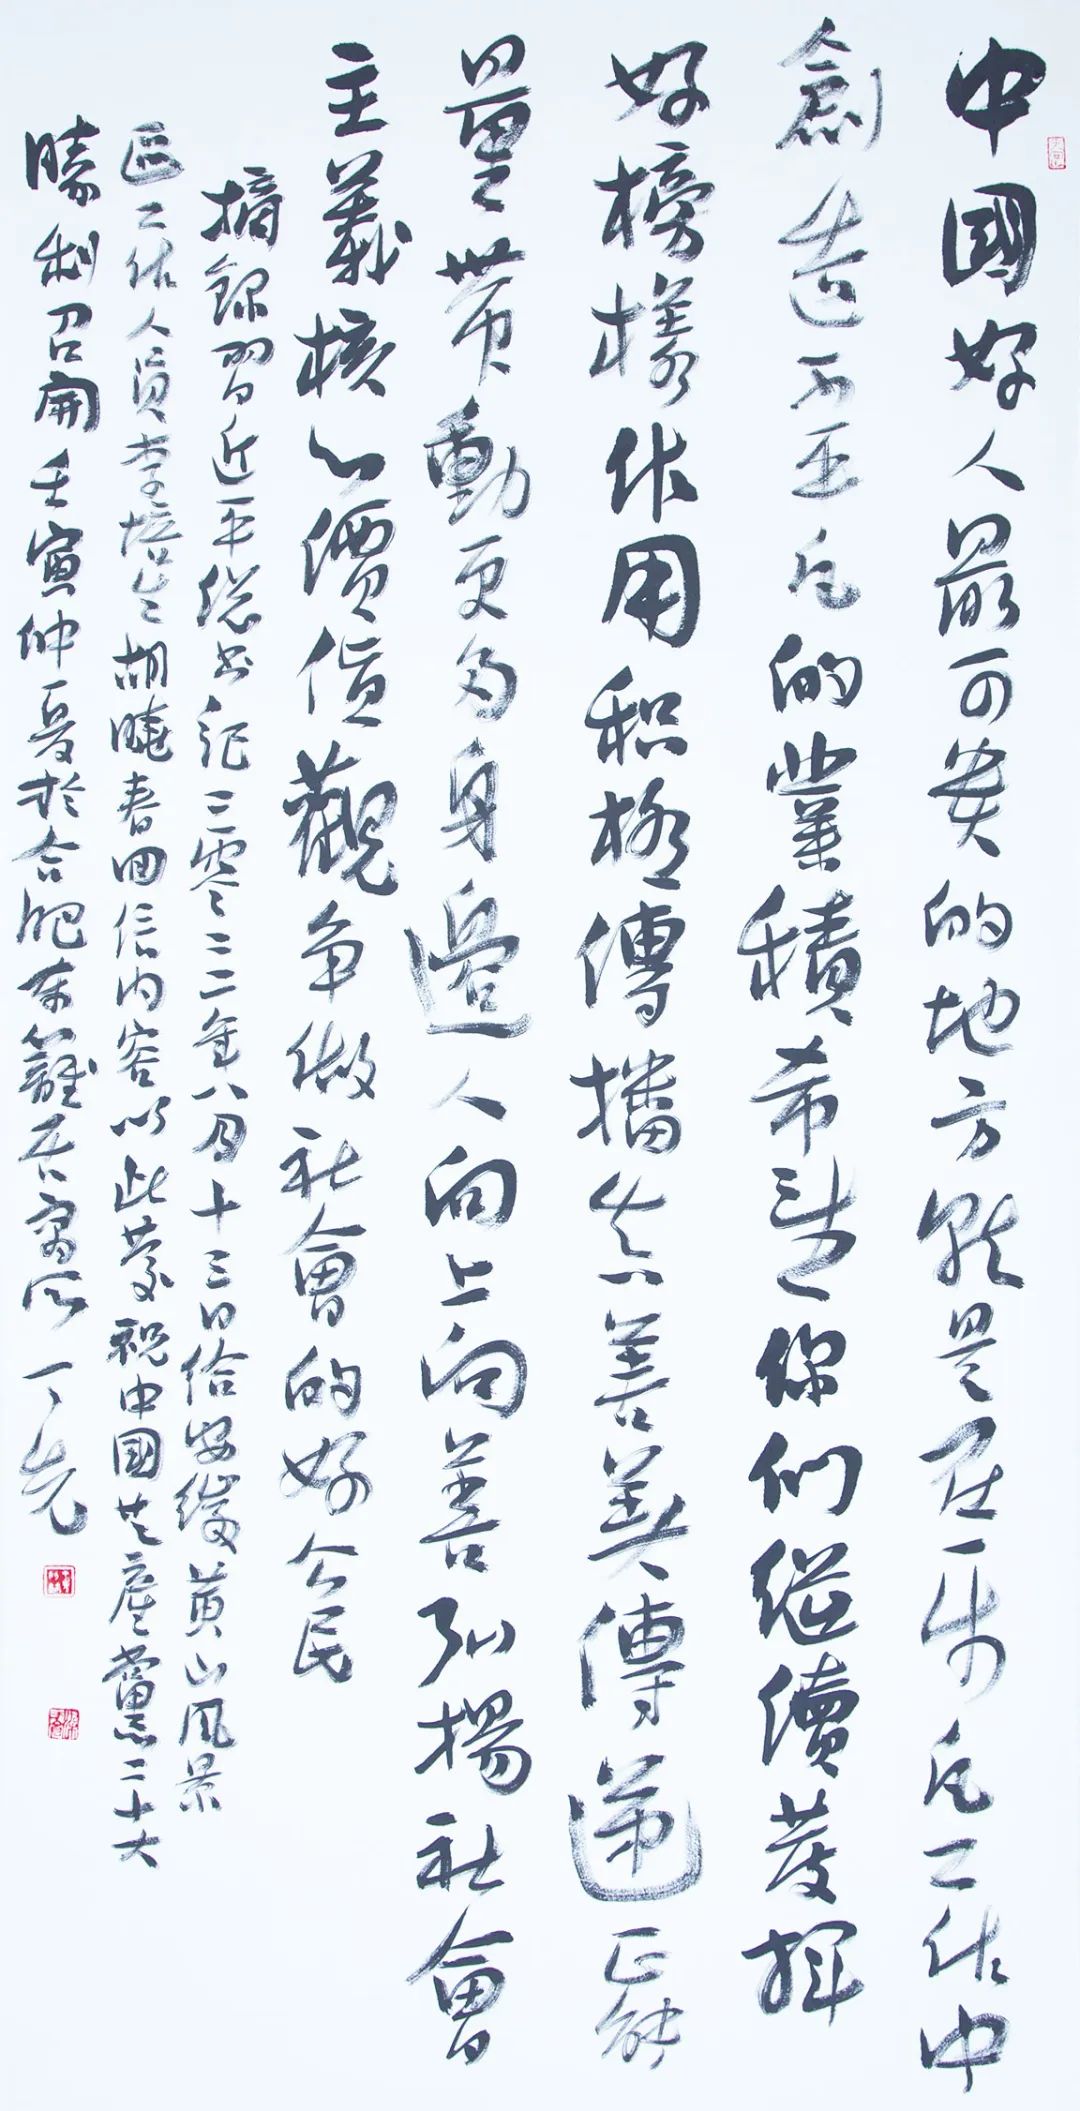 中國好人最可貴的地方就是在平凡工作中
創造不平凡的業積希望你們继續發揮
好榜樣作用积極傳播真善美傳遞正能
量带動更多身邊人向上向善弘揚社會
主義核心價值觀争做社會的好公民
摘錄習近平總書記二零二二年八月十三日给安徽黄山風景
區工作人員李培生胡曉春回信内容以此慶祝中國共產黨二十大
勝利召開壬寅仲夏於合肥東籬居寓所丁先